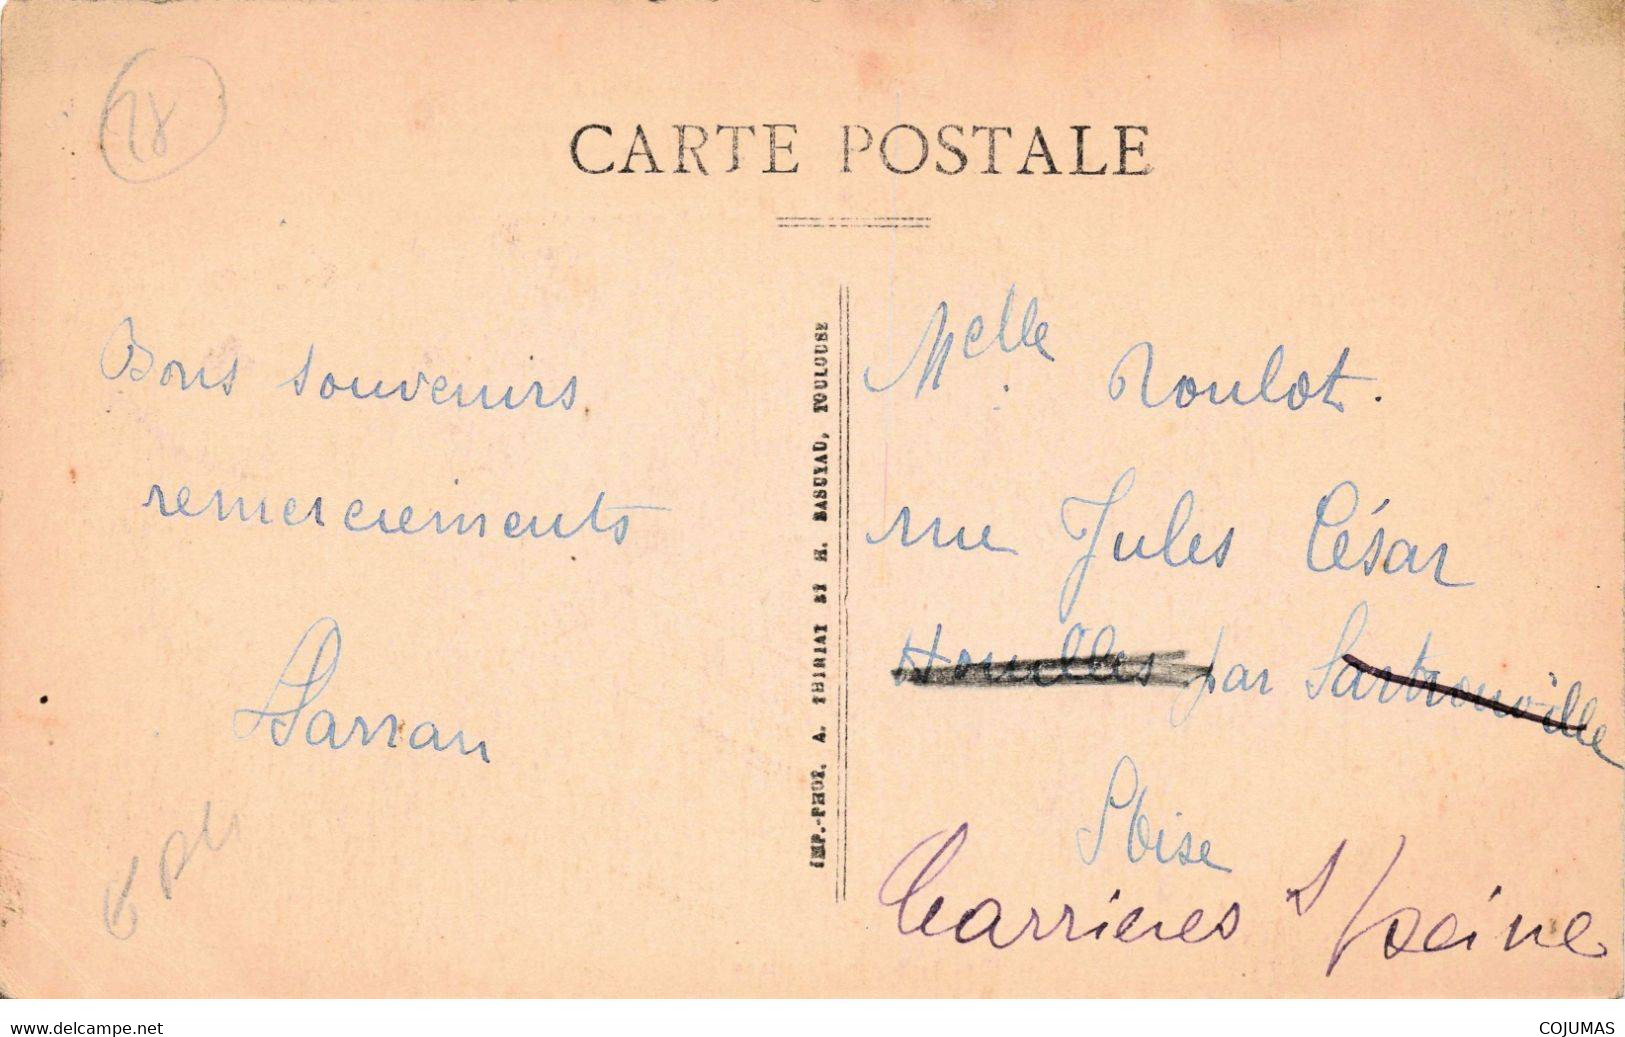 18
CARTE POSTALE
Bons souvenirs
remerciements
IMP.-PHOT. A. THIRIAT ET H. BASUYAU, TOULOUSE
Melle Roulot.
rue Jules César
Houilles par Sartrouville
S Oise
Carrieres s/ Seine
www.delcampe.net
COJUMAS